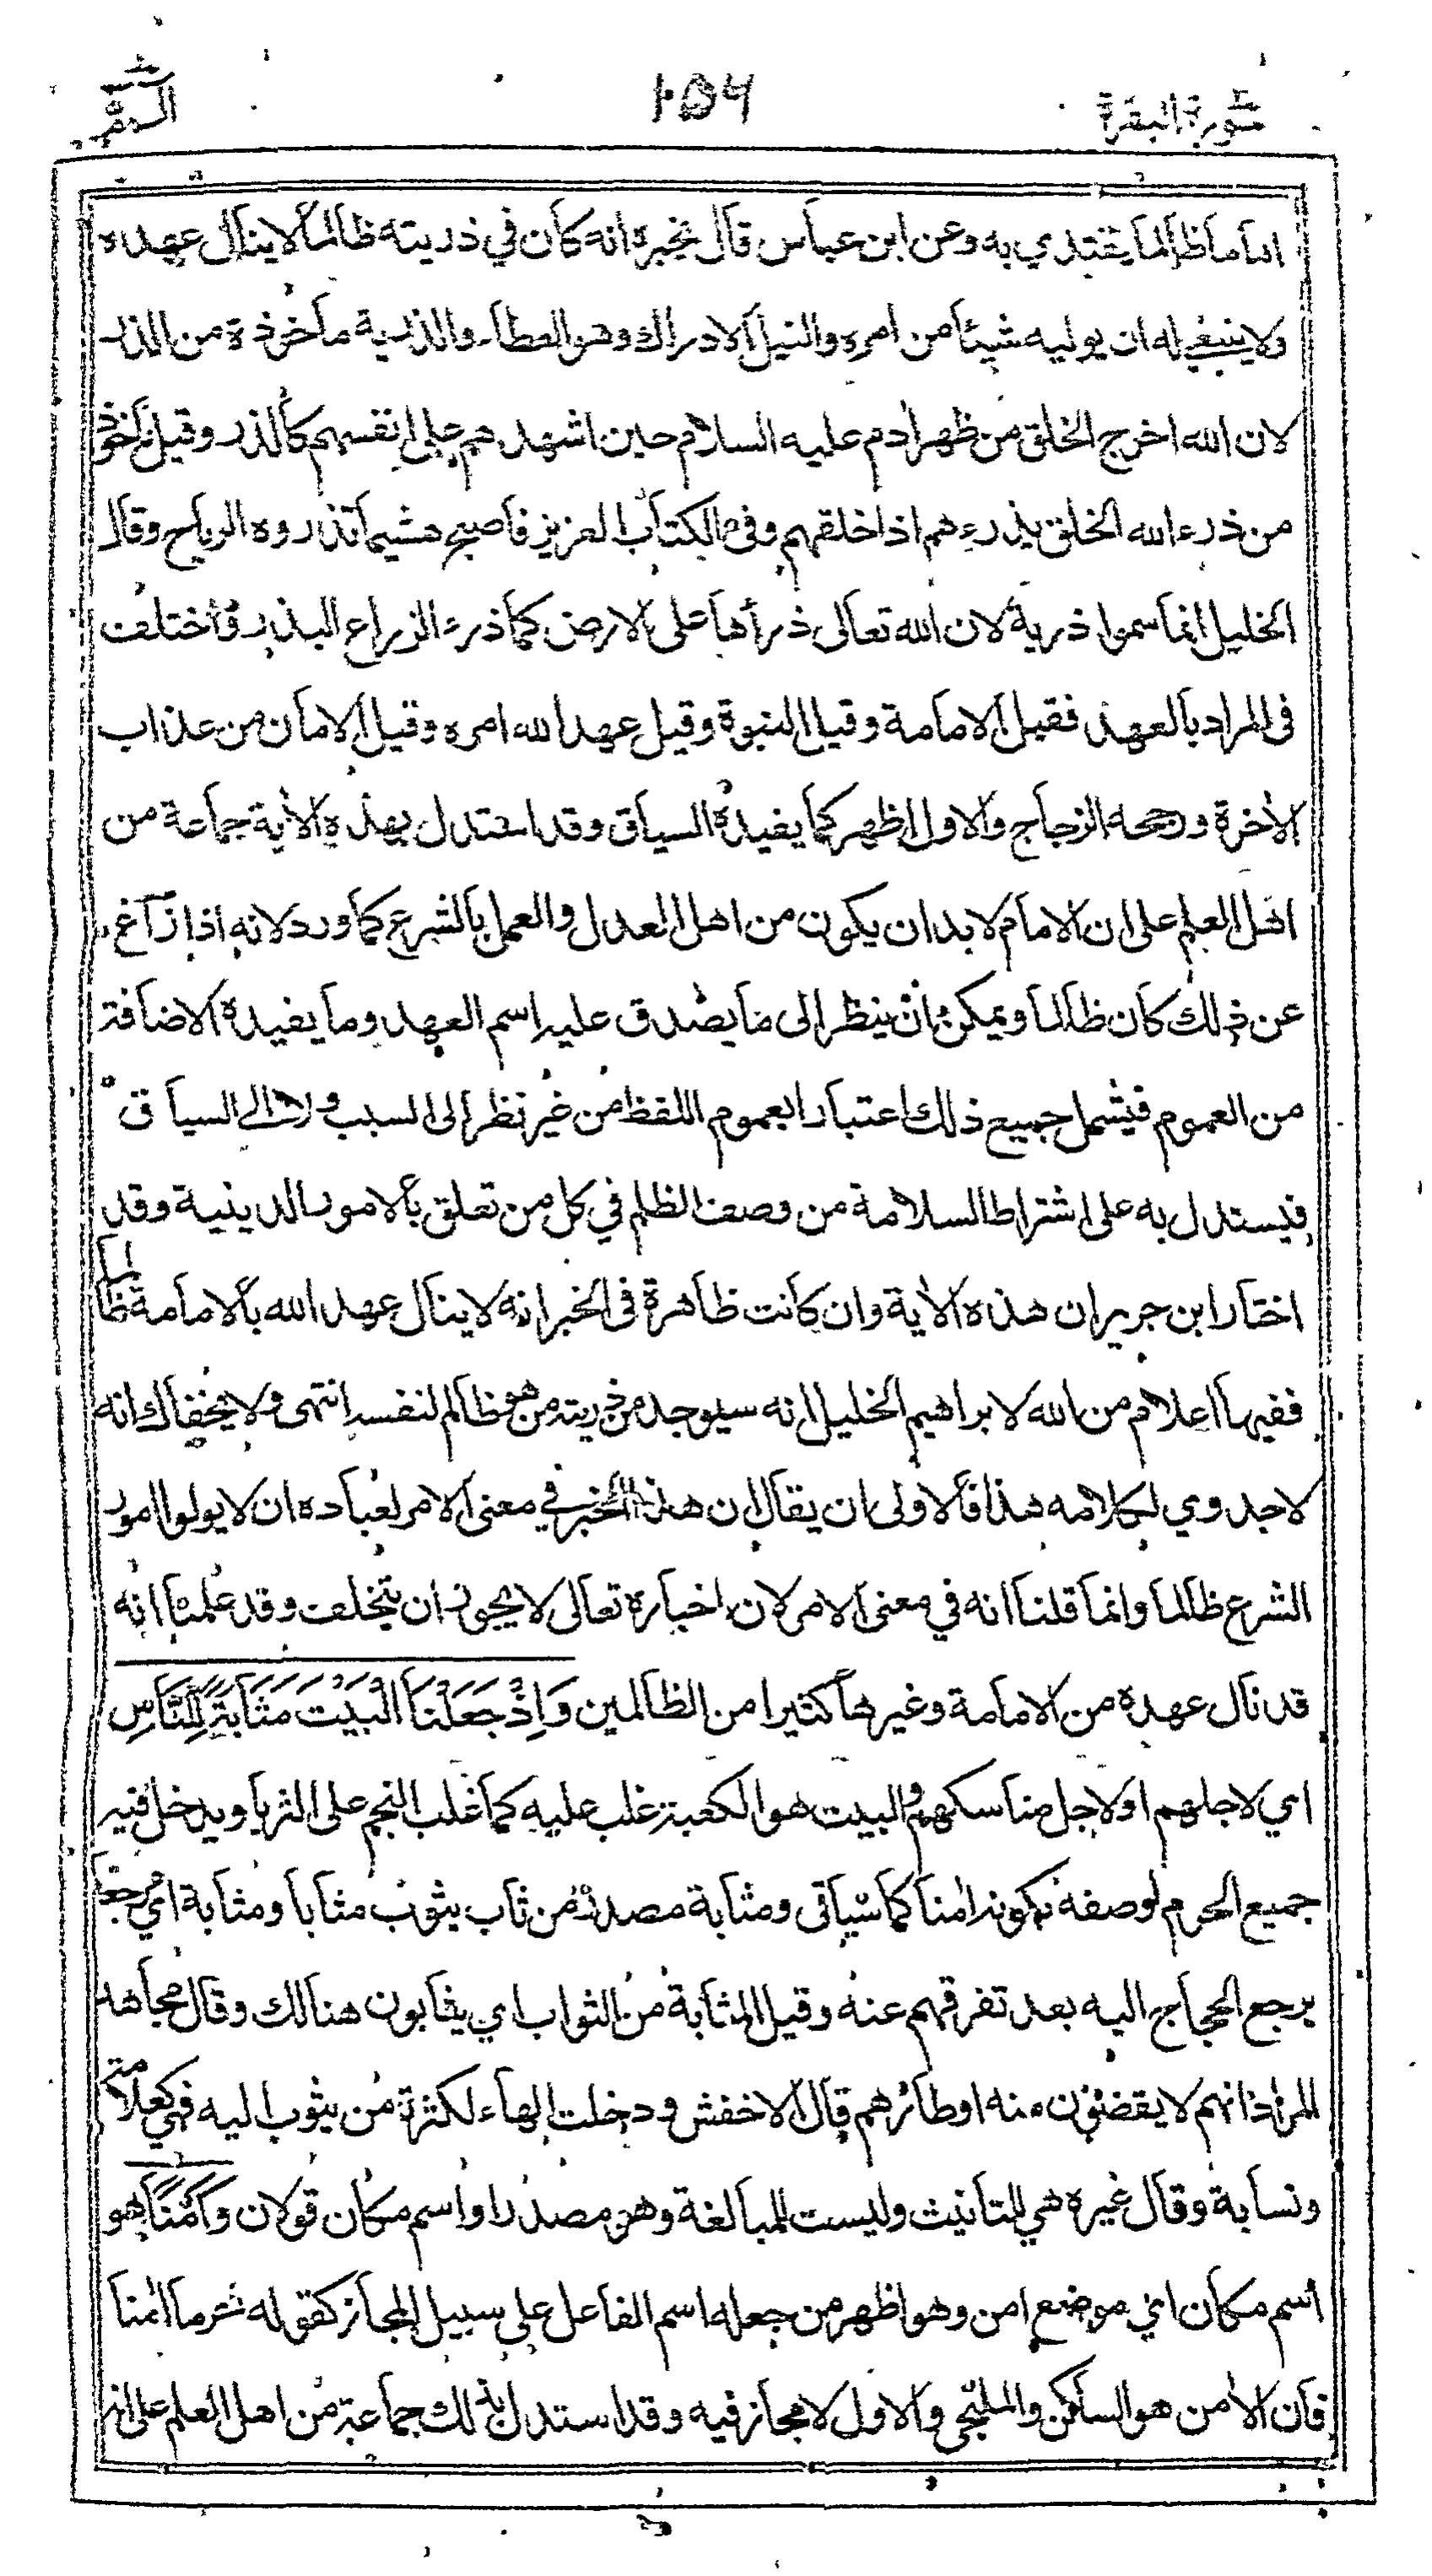 سورة البقرة
١٥٦
الم
اماما ظالما يقتدي به وعن ابن عباس قال يخبره انه كان في ذريته ظالما لا ينال عهده
ولا ينبغي له ان يوليه شيئا من امره والنيل الادراك وهو العطاء والذرية ماخوذة من الذر
لان الله اخرج الخلق من ظهر ادم عليه السلام حين اشهدهم على انفسهم كالذر وقيل ماخوذ
من ذرء الله الخلق يذرءهم اذا خلقهم وفي الكتاب العزيز فاصبح هشيما تذروه الرياح وقال
الخليل انما سموا ذرية لان الله تعالى ذرأها على الارض كما ذرء الزراع البذر واختلف
في المراد بالعهد فقيل الامامة وقيل النبوة وقيل عهد الله امره وقيل الامان من عذاب
الاخرة ورجحه الزجاج والاول اظهر كما يفيده السياق وقد استدل بهذه الاية جماعة من
اهل العلم على ان الامام لا بد ان يكون من اهل العدل والعمل بالشرع كما ورد لانه اذا زاغ
عن ذلك كان ظالما ويمكن ان ينظر الى ما يصدق عليه اسم العهد وما يفيده الاضافة
من العموم فيشمل جميع ذلك اعتبارا بعموم اللفظ من غير نظر الى السبب ولا الى السياق
فيستدل به على اشتراط السلامة من وصف الظلم في كل من تعلق بالامور الدينية وقد
اختار ابن جرير ان هذه الاية وان كانت ظاهرة في الخبر انه لا ينال عهد الله بالامامة ظالما
ففيها اعلام من الله لابراهيم الخليل انه سيوجد من ذريته من هو ظالم لنفسه انتهى ولا يخفاك انه
لا جدوي لكلامه هذا فالاولى ان يقال ان هذا الخبر في معنى الامر لعباده ان لا يولوا امور
الشرع ظالما وانما قلنا انه في معنى الامر لان اخباره تعالى لا يجوز ان يتخلف وقد علمنا انه
قد نال عهده من الامامة وغيرها كثيرا من الظالمين وَاِذْ جَعَلْنَا الْبَيْتَ مَثَابَةً لِّلنَّاسِ
اي لاجلهم او لاجل مناسكهم والبيت هو الكعبة غلب عليه كما غلب النجم على الثريا ويدخل فيه
جميع الحرم لوصفه بكونه امنا كما سياتي ومثابة مصدر من ثاب يثوب مثابا ومثابة اي مرجعا
يرجع الحجاج اليه بعد تفرقهم عنه وقيل المثابة من الثواب اي يثابون هنالك وقال مجاهد
المراد انهم لا يقضون منه اوطارهم قال الاخفش ودخلت الهاء لكثرة من يثوب اليه فهي كعلامة
ونسابة وقال غيره هي للتانيث وليست للمبالغة وهو مصدر او اسم مكان قولان وَاَمْنًا هو
اسم مكان اي موضع امن وهو اظهر من جعله اسم الفاعل على سبيل المجاز كقوله حرما امنا
فان الامن هو الساكن والملتجي والاول لا مجاز فيه وقد استدل بذلك جماعة من اهل العلم على انه